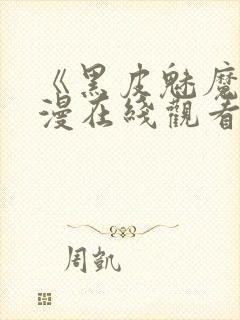 《黑皮魅魔
漫在线觀看
周凱